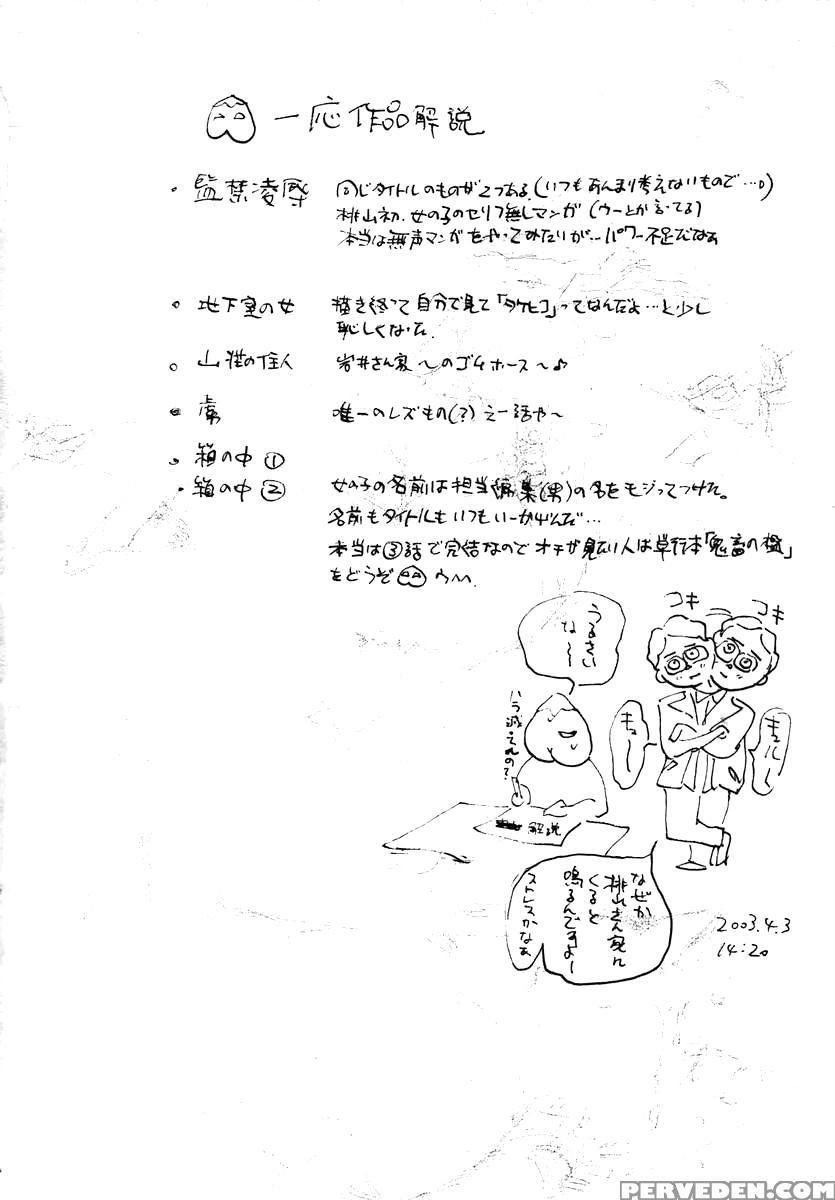 一応作品解説
・監禁凌辱 同じタイトルのものが2つある。(いつもあんまり考えないもので…。)
桃山初、女の子のセリフ無しマンガ(ウーとか言ってる)
本当は無声マンガをやってみたいが…パワー不足だなぁ
・地下室の女 描き終って自分で見て「タケヒコ」ってなんだよ…と少し
恥しくなった。
・山荘の住人 岩井さん家〜のゴムホース〜♪
・ 唯一のレズもの(?)えー話や〜
・箱の中①
・箱の中② 女の子の名前は担当編集(男)の名をモジってつけた。
名前もタイトルもいつもいーかげんだ…
本当は③話で完結なのでオチが見たい人は単行本「鬼畜の檻」
をどうぞ
コキ
コキ
うるさい
な〜
ハラ減ってんの?
キュー
キュルル
解説
なぜか
桃山さん家に
くると
鳴るんですよー
ストレスかなぁ
2003.4.3
14:20
PERVEDEN.COM